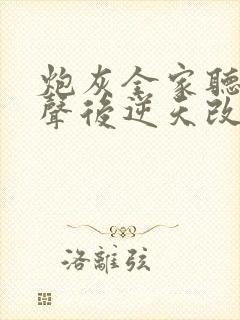 炮灰全家聽
聲後逆天改
洛離弦